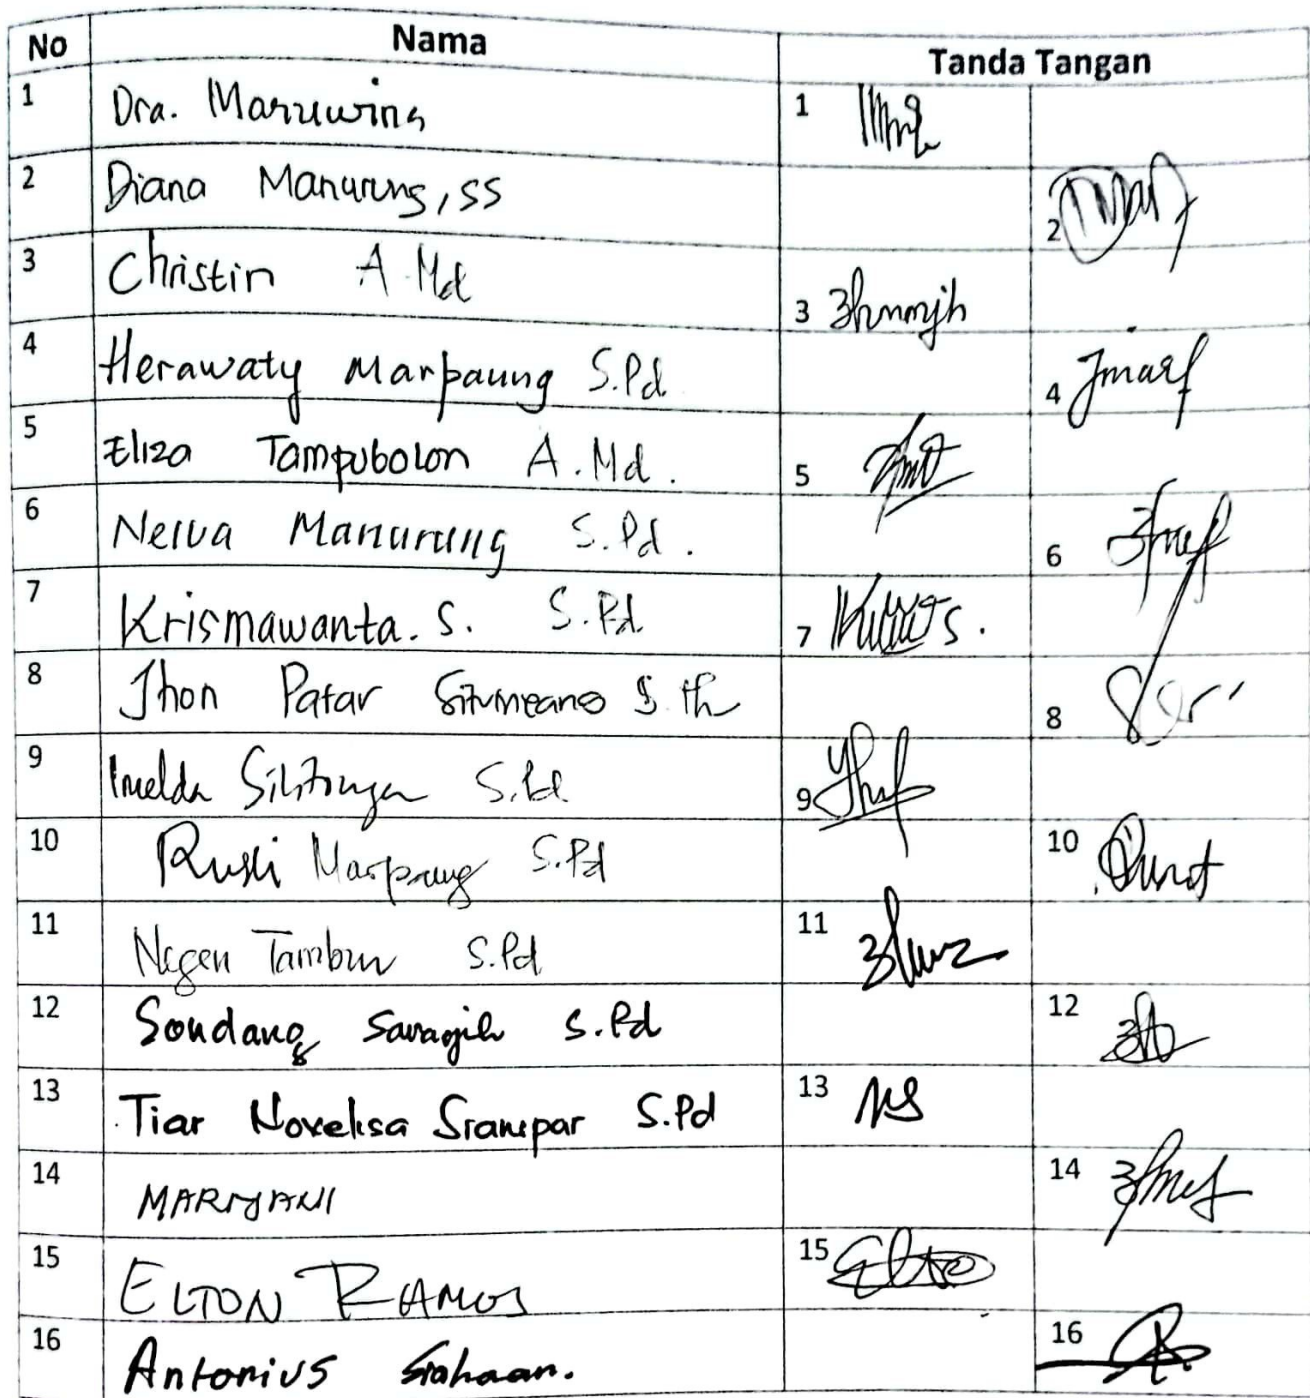 No Nama Tanda Tangan
1 Dra. Maruwina 1
2 Diana Manurung, SS 2
3 Christin A.Md 3
4 Herawaty Marpaung S.Pd 4
5 Eliza Tampubolon A.Md. 5
6 Nelva Manurung S.Pd. 6
7 Krismawanta. S. S.Pd 7
8 Jhon Patar Situmeang S.th 8
9 Imelda Silitonga S.Pd 9
10 Rusli Marpaung S.Pd 10
11 Negen Tambun S.Pd 11
12 Sondang Saragih S.Pd 12
13 Tiar Novelisa Sianipar S.Pd 13
14 MARIYANI 14
15 ELTON RAMOS 15
16 Antonius Siahaan. 16